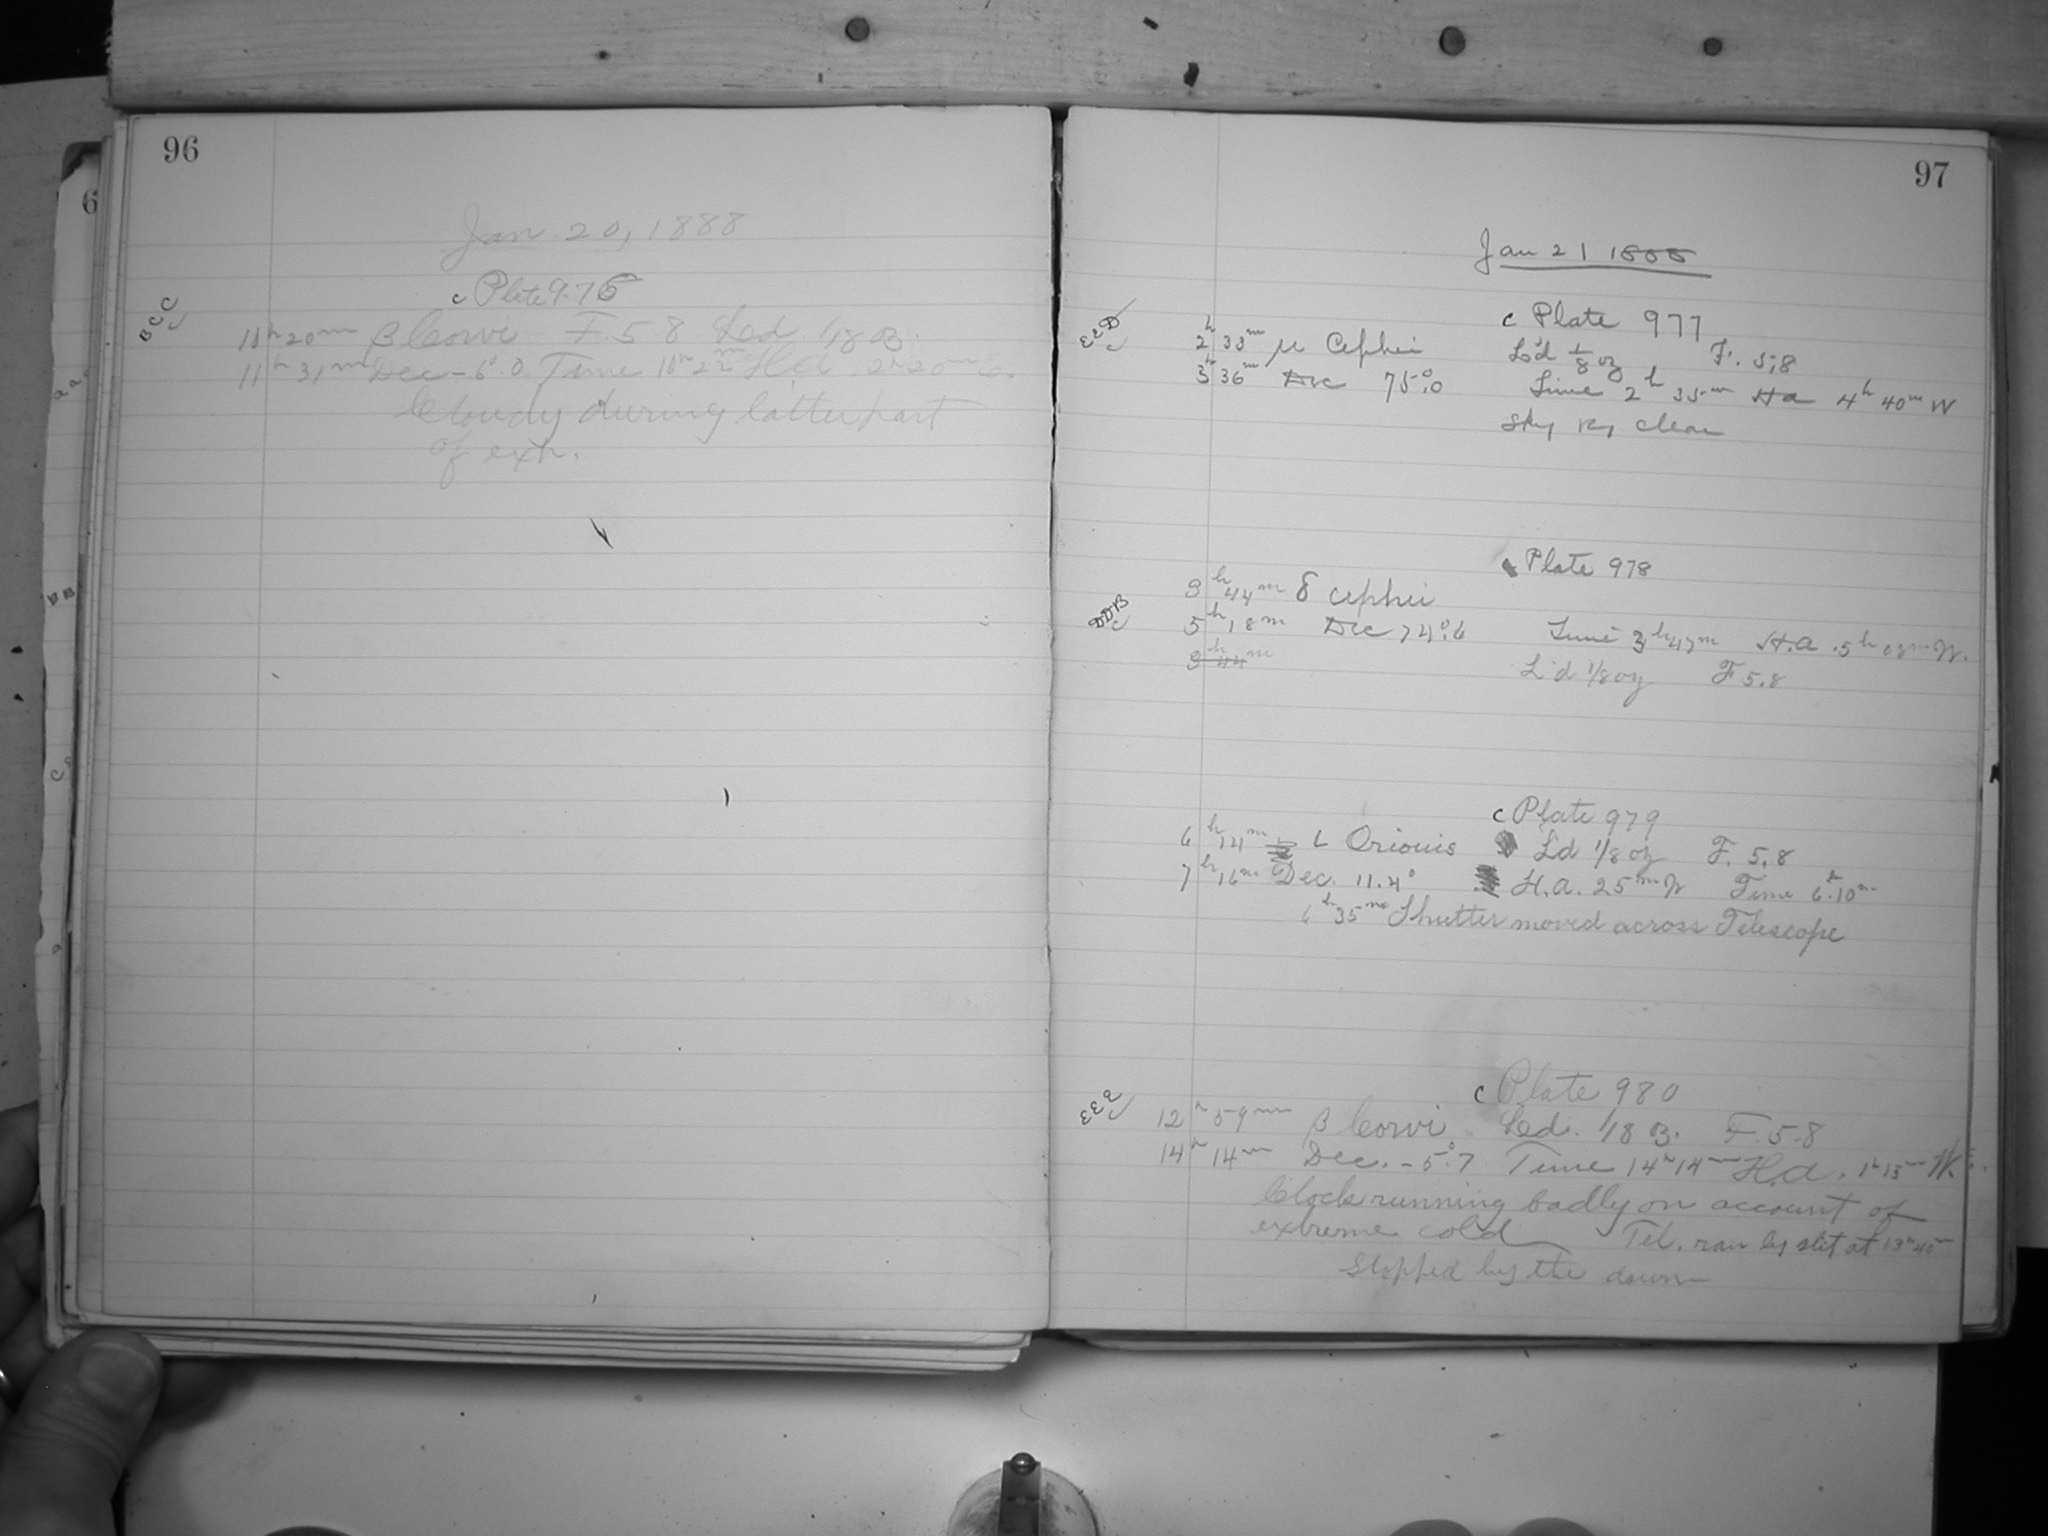 96
Jan 20, 1888
c Plate 976
BCC
11h 20m β Corvi F. 5.8 Led 1/8 oz.
11h 31m Dec -6°.0 Time 10h 22m H.a. 2h 20m E.
Cloudy during latter part
of exp.
97
Jan 21 1888
c Plate 977
EED
2h 33m μ Cephei L'd 1/8 oz F. 5.8
3h 36m Dec 75°.0 Time 2h 35m Ha 4h 40m W
Sky clear
Plate 978
3h 44m δ cephei
DDB
5h 18m Dec 74°.6 Time 3h 47m H.a. 5h 08m W.
3h 44m
L'd 1/8 oz F 5.8
c Plate 979
6h 14m ι Orionis Ld 1/8 oz F. 5.8
7h 16m Dec. 11.4° H.a. 25m W Time 6h 10m
6h 35m Shutter moved across Telescope
c Plate 980
EEE
12h 59m β Corvi Led. 1/8 oz. F. 5.8
14h 14m Dec. -5°.7 Time 14h 14m H.a. 1h 15m W
Clock running badly on account of
extreme cold Tel. ran by slit at 13h 40m
Stopped by the dawn